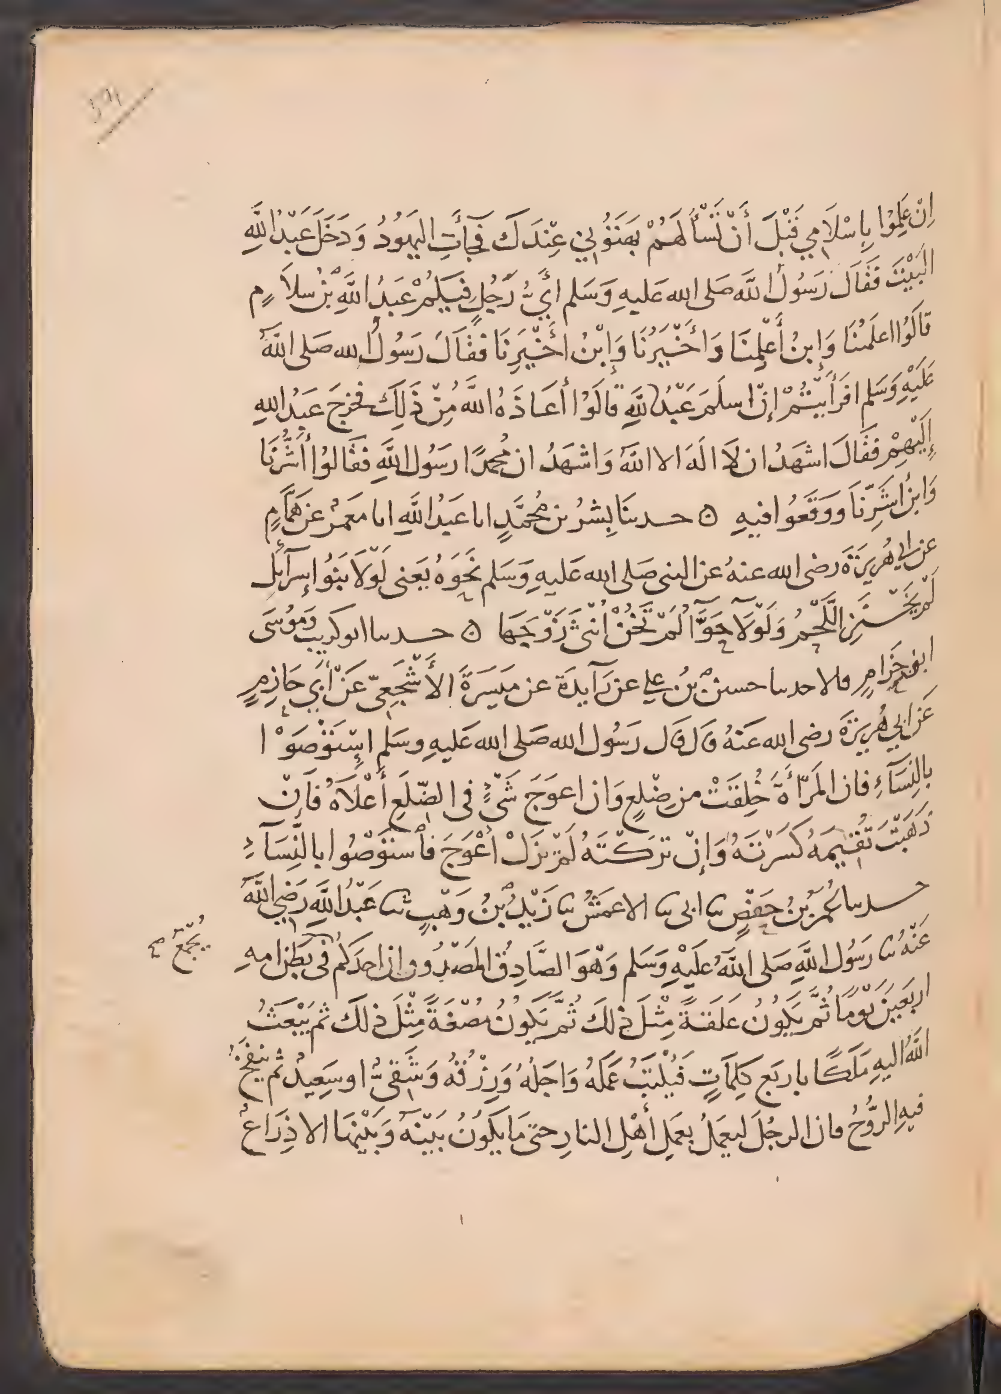 إِنْ عَلِمُوا بِإِسْلَامِي قَبْلَ أَنْ تَسْأَلَهُمْ بَهَتُونِي عِنْدَكَ فَجَأَتِ اليَهُودُ وَدَخَلَ عَبْدُ اللَّهِ
البَيْتَ فَقَالَ رَسُولُ اللَّه صَلى الله عَليهِ وَسَلم أَيُّ رَجُلٍ فِيكُمْ عَبدُ اللَّهِ بْنُ سلاَمٍ
قَالَوُا اعلَمُنَا وَابنُ أَعْلَمِنَا وَأَخْيَرُنَا وَابْنُ أَخْيَرِنَا فَقَالَ رَسُولُ الله صَلى اللهُ
عَليْهِ وَسَلم افَرَأَيْتُمْ إِنْ اسلَمَ عَبْدُ اللَّهِ قالَوُا أَعَاذَهُ اللَّه مِنْ ذَلِكَ فخرجَ عبدُ اللهِ
إِلَيْهِمْ فَقَالَ اشهَدُ ان لَا الَهَ الا اللهُ وَاشهَدُ ان مُحمدًا رسُولُ اللَّهِ فقَالوُا أَشَرُّنَا
وَابنُ اشَرِّنَا وَوَقَعُوا فيهِ ه حدثنَا بِشرُ بن مُحمَّدٍ انا عَبدُ اللَّهِ انا مَعمَرُ عن هَمَّامٍ
عن ابي هُرَيرَةَ رضى الله عنهُ عن النبى صَلى الله عَليهِ وَسَلم نَحوَهُ يَعنى لَوْلَا بَنُوا إِسرَآئِلَ
لَمْ يَخْنَزِ اللَّحْمُ وَلَوْلَا حَوَّآ لَمْ تَخُنْ أُنْثَى زَوْجَهَا ه حدثنا ابو كريب وَمُوسَى
ابن حِزَامٍ قالا حدثنا حسين بْنُ علي عن زَآيدَةَ عن مَيسَرَةَ الأَشْجَعِيّ عَنْ أَبِي حَازِمٍ
عَن ابي هُرَيرَةَ رضى الله عَنهُ قال قال رَسُول الله صَلى الله عَليهِ وَسَلم اسْتَوْصَوْا
بالنِّسَآءِ فان المَرْأَةَ خُلِقَتْ من ضِلْعٍ وَان اعوَجَ شَىْءٍ فى الضِّلَعِ أَعْلَاهُ فَاِنْ
ذَهَبْتَ تُقِيمَهُ كَسَرْتَهُ وَإِنْ تَرَكْتَهُ لَمْ يزَلْ أَعْوَجَ فاستَوْصُوا بالنِّسَآءِ
حدثنا عُمَرُ بْنُ حَفْصٍ ثنا ابى ثنا الاعمَشُ ثنا زَيْدُ بْنُ وَهْبٍ ثنا عَبْدُ اللَّهِ رَضِيَ اللَّهُ
عَنْهُ ثنا رَسُولُ اللَّهِ صَلى اللهُ عَليْهِ وَسَلم وَهْوَ الصَّادِقُ المَصْدُوق ان احدَكم فى بَطْنِ امهِ
يُجمَعُ صح
اربَعِينَ يَوْمًا ثُمَّ يَكُونُ عَلَقَةً مِثْلَ ذَلِكَ ثُمَّ يَكُونُ مُضْغَةً مِثْلَ ذلكَ ثم يَبْعَثُ
اللَّهُ اليهِ مَلَكًا باربَعِ كلِمَاتٍ فَيُكْتَبُ عَمَلُهُ وَاجَلُهُ وَرِزْقُهُ وَشَقِيٌّ او سَعِيدٌ ثم يُنفَخُ
فيهِ الرُّوْحُ فان الرجُلَ ليَعمَلُ بعَمَلِ أَهْلِ النارِ حتى مَا يَكُونُ بَيْنَهُ وَبَيْنهَا الا ذِرَاعُ